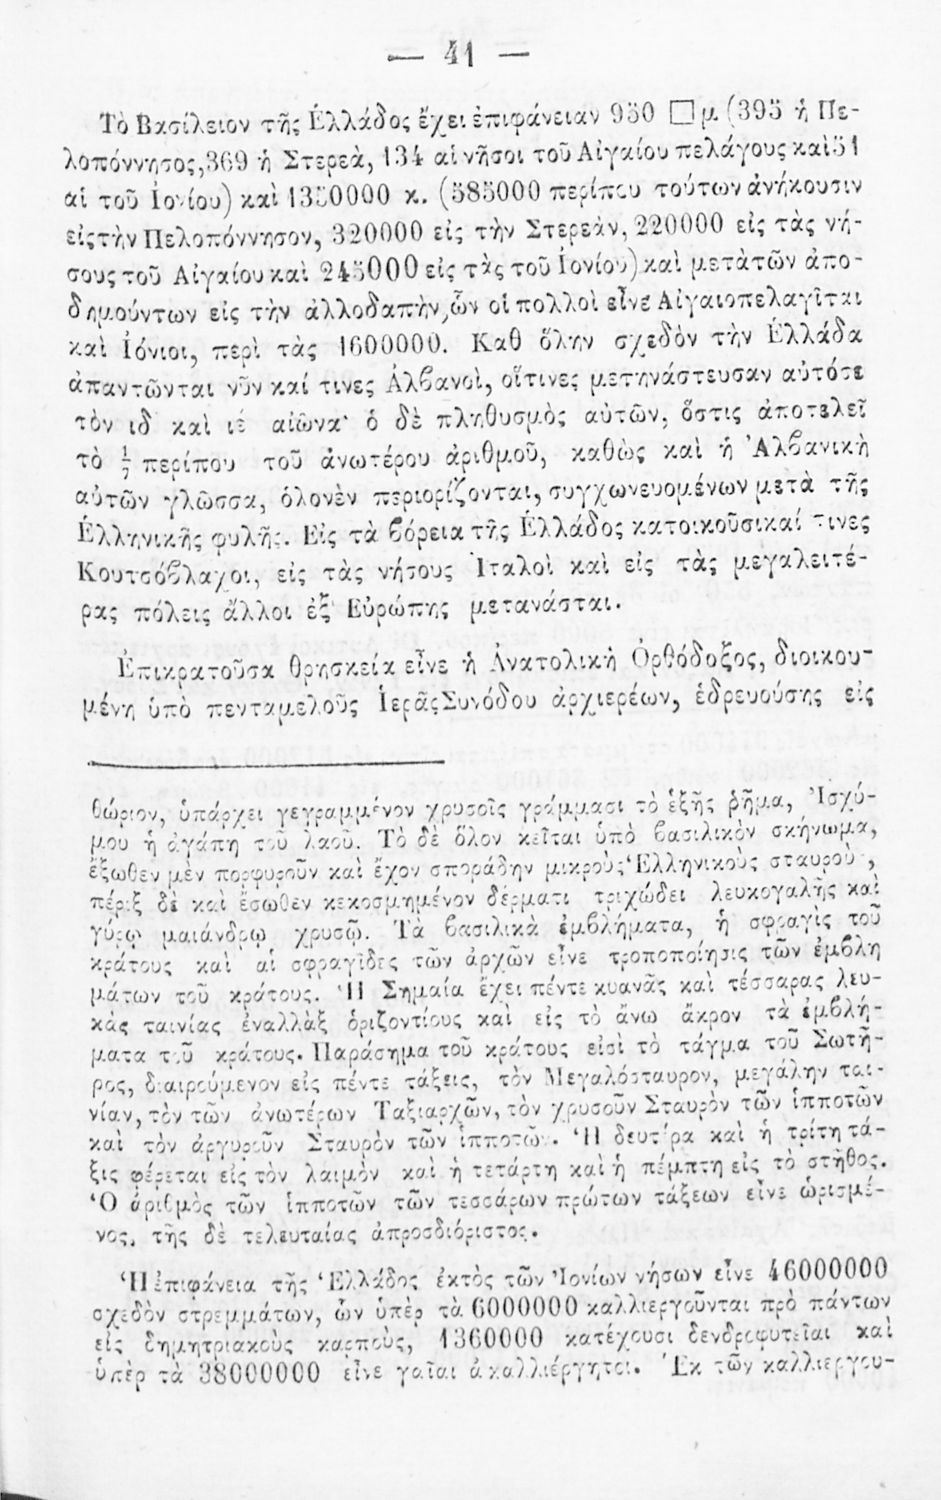 — 41 —
Τὸ Βασίλειον τῆς Ἑλλάδος ἔχει ἐπιφάνειαν 950 □ μ. (395 ἡ Πε-
λοπόννησος, 369 ἡ Στερεὰ, 134 αἱ νῆσοι τοῦ Αἰγαίου πελάγους καὶ 51
αἱ τοῦ Ἰονίου) καὶ 1350000 κ. (585000 περίπου τούτων ἀνήκουσιν
εἰς τὴν Πελοπόννησον, 320000 εἰς τὴν Στερεὰν, 220000 εἰς τὰς νή-
σους τοῦ Αἰγαίου καὶ 245000 εἰς τὰς τοῦ Ἰονίου) καὶ μετὰ τῶν ἀπο-
δημούντων εἰς τὴν ἀλλοδαπὴν, ὧν οἱ πολλοὶ εἶνε Αἰγαιοπελαγῖται
καὶ Ἰόνιοι, περὶ τὰς 1600000. Καθ ὅλην σχεδὸν τὴν Ἑλλάδα
ἀπαντῶνται νῦν καί τινες Ἀλβανοὶ, οἵτινες μετηνάστευσαν αὐτόσε
τὸν ιδ καὶ ιέ αἰῶνα· ὁ δὲ πληθυσμὸς αὐτῶν, ὅστις ἀποτελεῖ
τὸ 1/7 περίπου τοῦ ἀνωτέρου ἀριθμοῦ, καθὼς καὶ ἡ Ἀλβανικὴ
αὐτῶν γλῶσσα, ὁλονὲν περιορίζονται, συγχωνευομένων μετὰ τῆς
Ἑλληνικῆς φυλῆς. Εἰς τὰ βόρεια τῆς Ἑλλάδος κατοικοῦσι καί τινες
Κουτσόβλαχοι, εἰς τὰς νήσους Ἰταλοὶ καὶ εἰς τὰς μεγαλειτέ-
ρας πόλεις ἄλλοι ἐξ Εὐρώπης μετανάσται.
Ἐπικρατοῦσα θρησκεία εἶνε ἡ Ἀνατολικὴ Ὀρθόδοξος, διοικου-
μένη ὑπὸ πενταμελοῦς Ἱερᾶς Συνόδου ἀρχιερέων, ἑδρευούσης εἰς
θώριον, ὑπάρχει γεγραμμένον χρυσοῖς γράμμασι τὸ ἑξῆς ῥῆμα, Ἰσχύ-
μου ἡ ἀγάπη τοῦ λαοῦ. Τὸ δὲ ὅλον κεῖται ὑπὸ βασιλικὸν σκήνωμα,
ἔξωθεν μὲν πορφυροῦν καὶ ἔχον σποράδην μικροὺς Ἑλληνικοὺς σταυροὺς,
πέριξ δὲ καὶ ἔσωθεν κεκοσμημένον δέρματι τριχώδει λευκογαλῆς καὶ
γύρῳ μαιάνδρῳ χρυσῷ. Τὰ βασιλικὰ ἐμβλήματα, ἡ σφραγὶς τοῦ
κράτους καὶ αἱ σφραγῖδες τῶν ἀρχῶν εἶνε τροποποίησις τῶν ἐμβλη
μάτων τοῦ κράτους. Ἡ Σημαία ἔχει πέντε κυανᾶς καὶ τέσσαρας λευ-
κὰς ταινίας ἐναλλὰξ ὁριζοντίους καὶ εἰς τὸ ἄνω ἄκρον τὰ ἐμβλή-
ματα τοῦ κράτους. Παράσημα τοῦ κράτους εἰσὶ τὸ τάγμα τοῦ Σωτῆ-
ρος, διαιρούμενον εἰς πέντε τάξεις, τὸν Μεγαλόσταυρον, μεγάλην ται-
νίαν, τὸν τῶν ἀνωτέρων Ταξιαρχῶν, τὸν χρυσοῦν Σταυρὸν τῶν ἱπποτῶν
καὶ τὸν ἀργυροῦν Σταυρὸν τῶν ἱπποτῶν. Ἡ δευτέρα καὶ ἡ τρίτη τά-
ξις φέρεται εἰς τὸν λαιμὸν καὶ ἡ τετάρτη καὶ ἡ πέμπτη εἰς τὸ στῆθος.
Ὁ ἀριθμὸς τῶν ἱπποτῶν τῶν τεσσάρων πρώτων τάξεων εἶνε ὡρισμέ-
νος, τῆς δὲ τελευταίας ἀπροσδιόριστος.
Ἡ ἐπιφάνεια τῆς Ἑλλάδος ἐκτὸς τῶν Ἰονίων νήσων εἶνε 46000000
σχεδὸν στρεμμάτων, ὧν ὑπὲρ τὰ 6000000 καλλιεργοῦνται πρὸ πάντων
εἰς δημητριακοὺς καρποὺς, 1360000 κατέχουσι δενδροφυτεῖαι καὶ
ὑπὲρ τὰ 38000000 εἶνε γαῖαι ἀκαλλιέργητοι. Ἐκ τῶν καλλιεργου-